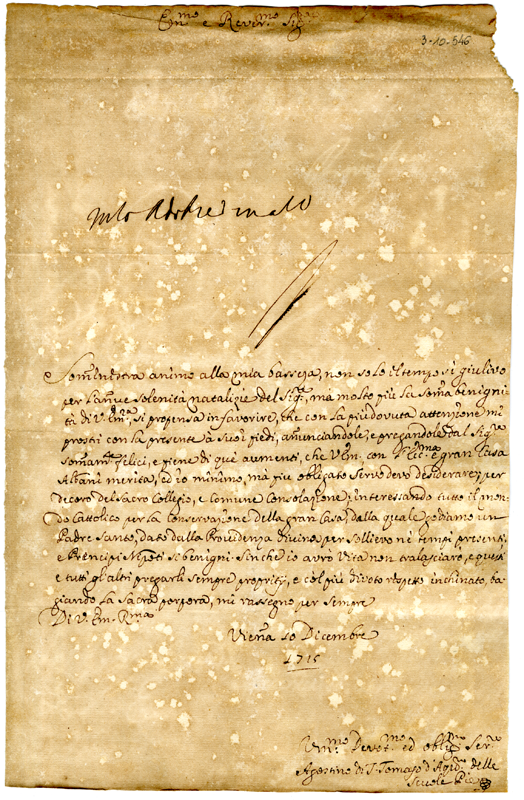 Em.mo e Rever.mo Sig.re
3-10-546
Somministra animo alla mia bassezza, non solo il tempo sì giulivo
per l'annue solenità natalizie del Sig.re, mà molto più la somma benigni-
tà di V. Em.za, si propensa in favorire, che con la più dovuta attenzione mi
prostri con la presente à suoi piedi, annunciandole, e pregandole dal Sig.re
somam.te felici, e piene di què aumenti, che V. Em. con l'Ecc.ma e gran Casa
Albani merita, ed io minimo, mà più obligato Servo devo desiderare, per
decoro del Sacro Collegio, e comune consolazione; interessando tutto il mon-
do Cattolico per la conservazione della gran Casa, dalla quale godiamo un
Padre Santo, dato dalla Providenza divina per sollievo nè tempi presenti,
e Prencipi Nipoti sì benigni. Sinche io avrò vita non tralasciarò, e questi
e tutti gl'altri pregarli sempre propitij, e col più divoto rispetto inchinato, ba-
ciando la Sacra porpora, mi rassegno per sempre
Di V. Em. R.ma
Vienna 10 Dicembre
1715
Um.mo Devot.mo ed oblig.mo Ser.re
Agostino di S. Tomaso d'Aq.no delle
Scuole Pie